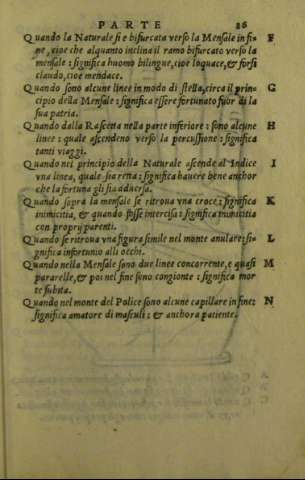 PARTE 26
Quando la Naturale si e bifurcata verso la Mensale in fi- F
ne, cioe che alquanto inclina il ramo bifurcato verso la
mensale: significa huomo bilingue, cioe loquace, & forsi
claudo, cioe mendace.
Quando sono alcune linee in modo di stella, circa il prin- G
cipio della Mensale: significa essere fortunato fuor di la
sua patria.
Quando dalla Rascetta nella parte inferiore: sono alcune H
linee: quale ascendeno verso la percussione: significa
tanti viaggi.
Quando nel principio della Naturale ascende al Indice I
vna linea, quale sia retta: significa hauere bene anchor
che la fortuna gli sia aduersa.
Quando sopra la mensale se ritroua vna croce: significa K
inimicitia, & quando fosse intercisa: significa inimicitia
con proprÿ parenti.
Quando se ritroua vna figura simile nel monte anulare: si- L
gnifica infortunio alli occhi.
Quando nella Mensale sono due linee concorrente, e quasi M
pararelle, & poi nel fine sono congionte: significa mor
te subita.
Quando nel monte del Police sono alcune capillare in fine: N
significa amatore di masculi: & anchora patiente.